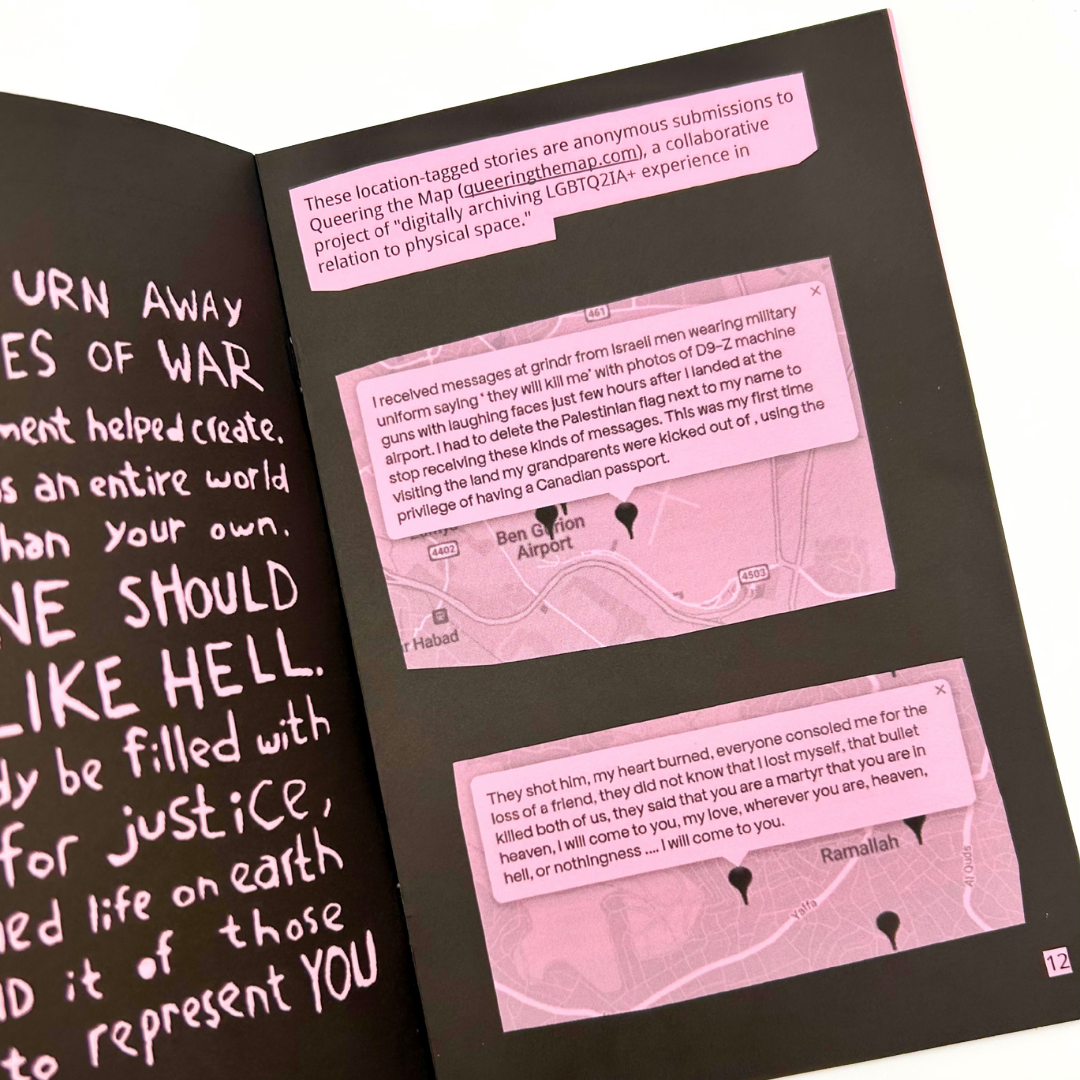 URN AWAY
ES OF WAR
ment helped create.
s an entire world
han your own.
NE SHOULD
LIKE HELL.
dy be filled with
for justice,
ned life on earth
ND it of those
to represent YOU
These location-tagged stories are anonymous submissions to
Queering the Map (queeringthemap.com), a collaborative
project of "digitally archiving LGBTQ2IA+ experience in
relation to physical space."
461
I received messages at grindr from Israeli men wearing military
uniform saying " they will kill me" with photos of D9-Z machine
guns with laughing faces just few hours after I landed at the
airport. I had to delete the Palestinian flag next to my name to
stop receiving these kinds of messages. This was my first time
visiting the land my grandparents were kicked out of , using the
privilege of having a Canadian passport.
Ben Gurion
Airport
4402
4503
r Habad
They shot him, my heart burned, everyone consoled me for the
loss of a friend, they did not know that I lost myself, that bullet
killed both of us, they said that you are a martyr that you are in
heaven, I will come to you, my love, wherever you are, heaven,
hell, or nothingness .... I will come to you.
Ramallah
Al Quds
Yaffa
12